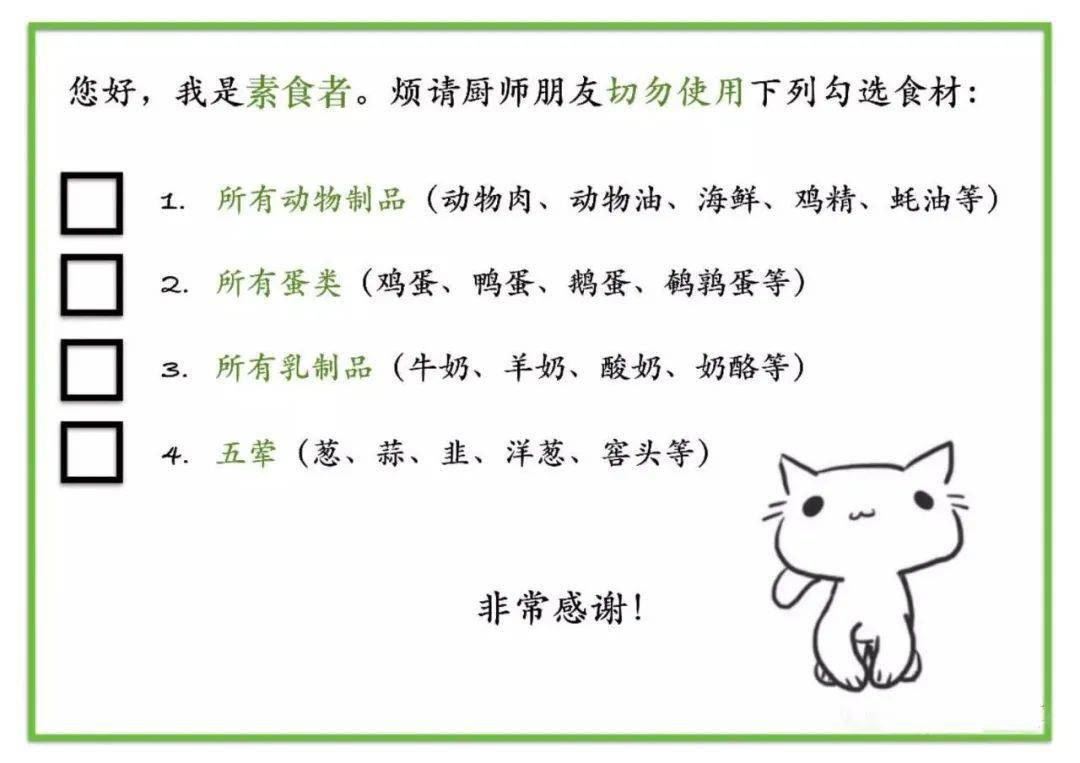 您好，我是素食者。烦请厨师朋友切勿使用下列勾选食材：
1. 所有动物制品（动物肉、动物油、海鲜、鸡精、蚝油等）
2. 所有蛋类（鸡蛋、鸭蛋、鹅蛋、鹌鹑蛋等）
3. 所有乳制品（牛奶、羊奶、酸奶、奶酪等）
4. 五荤（葱、蒜、韭、洋葱、窖头等）
非常感谢！